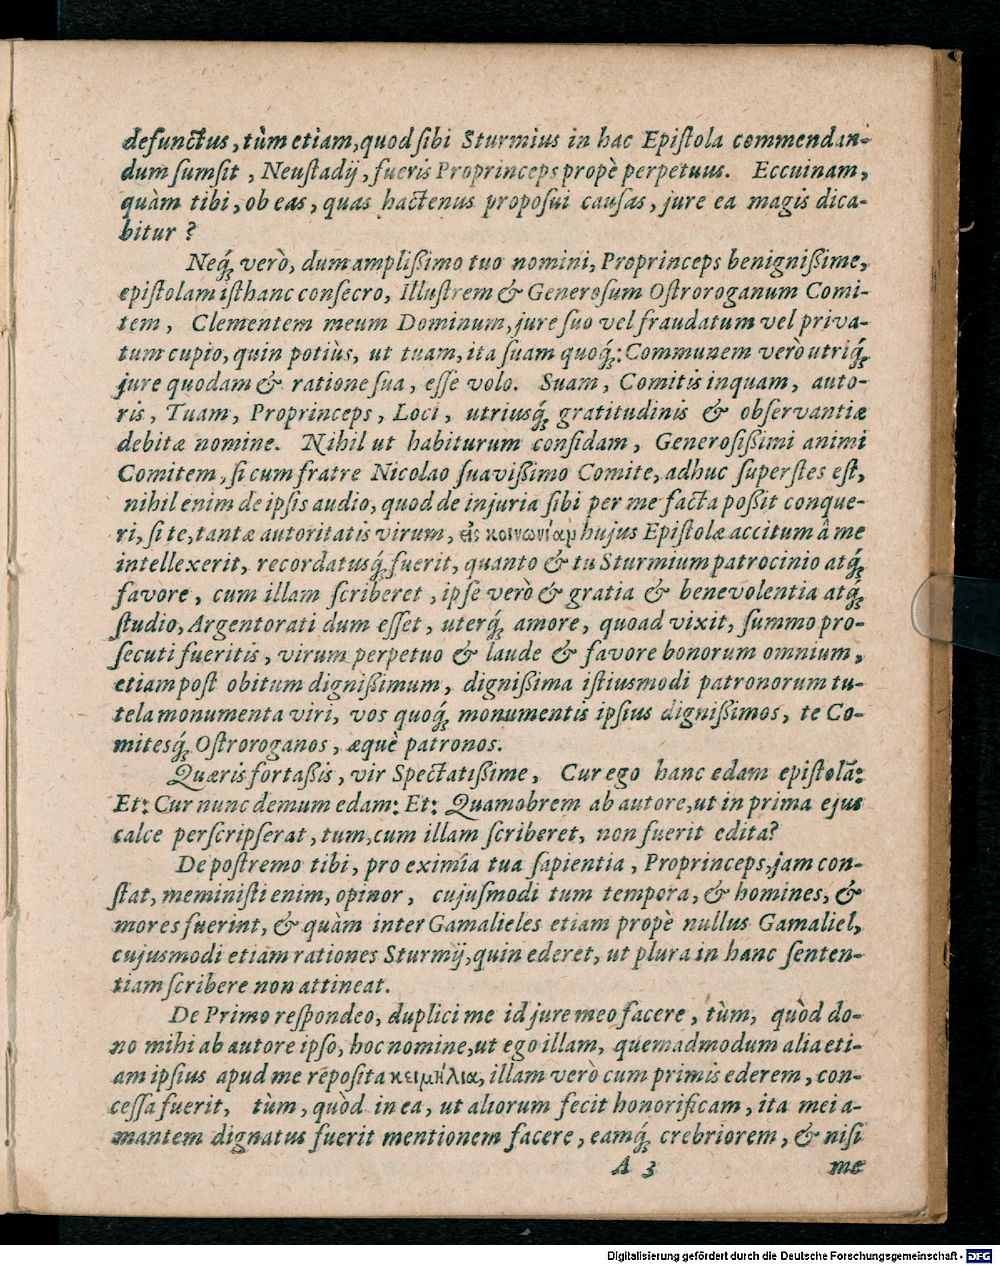 defunctus, tùm etiam, quod sibi Sturmius in hac Epistola commendan-
dum sumsit, Neustadij, fueris Proprinceps propè perpetuus. Eccuinam,
quàm tibi, ob eas, quas hactenus proposui causas, jure ea magis dica-
bitur?
Neq́; verò, dum amplißimo tuo nomini, Proprinceps benignißime,
epistolam isthanc consecro, Illustrem & Generosum Ostroroganum Comi-
tem, Clementem meum Dominum, jure suo vel fraudatum vel priva-
tum cupio, quin potiùs, ut tuam, ita suam quoq́;: Communem verò utriq́;
jure quodam & ratione sua, esse volo. Suam, Comitis inquam, auto-
ris, Tuam, Proprinceps, Loci, utriusq́; gratitudinis & observantiæ
debitæ nomine. Nihil ut habiturum confidam, Generosißimi animi
Comitem, si cum fratre Nicolao suavißimo Comite, adhuc superstes est,
nihil enim de ipsis audio, quod de injuria sibi per me facta poßit conque-
ri, si te, tantæ autoritatis virum, εἰς κοινωνίαν hujus Epistolæ accitum â me
intellexerit, recordatusq́; fuerit, quanto & tu Sturmium patrocinio atq́;
favore, cum illam scriberet, ipse verò & gratia & benevolentia atq́;
studio, Argentorati dum esset, uterq́; amore, quoad vixit, summo pro-
secuti fueritis, virum perpetuo & laude & favore bonorum omnium,
etiam post obitum dignißimum, dignißima istiusmodi patronorum tu-
tela monumenta viri, vos quoq́; monumentis ipsius dignißimos, te Co-
mitesq́; Ostroroganos, æquè patronos.
Quæris fortaßis, vir Spectatißime, Cur ego hanc edam epistolā:
Et: Cur nunc demum edam: Et: Quamobrem ab autore, ut in prima ejus
calce perscripserat, tum, cum illam scriberet, non fuerit edita?
De postremo tibi, pro eximia tua sapientia, Proprinceps, jam con-
stat, meministi enim, opinor, cujusmodi tum tempora, & homines, &
mores fuerint, & quàm inter Gamalieles etiam propè nullus Gamaliel,
cujusmodi etiam rationes Sturmij, quin ederet, ut plura in hanc senten-
tiam scribere non attineat.
De Primo respondeo, duplici me id jure meo facere, tùm, quòd do-
no mihi ab autore ipso, hoc nomine, ut ego illam, quemadmodum alia eti-
am ipsius apud me reposita κειμήλια, illam verò cum primis ederem, con-
cessa fuerit, tùm, quòd in ea, ut aliorum fecit honorificam, ita mei a-
mantem dignatus fuerit mentionem facere, eamq́; crebriorem, & nisi
A 3 me
Digitalisierung gefördert durch die Deutsche Forschungsgemeinschaft - DFG